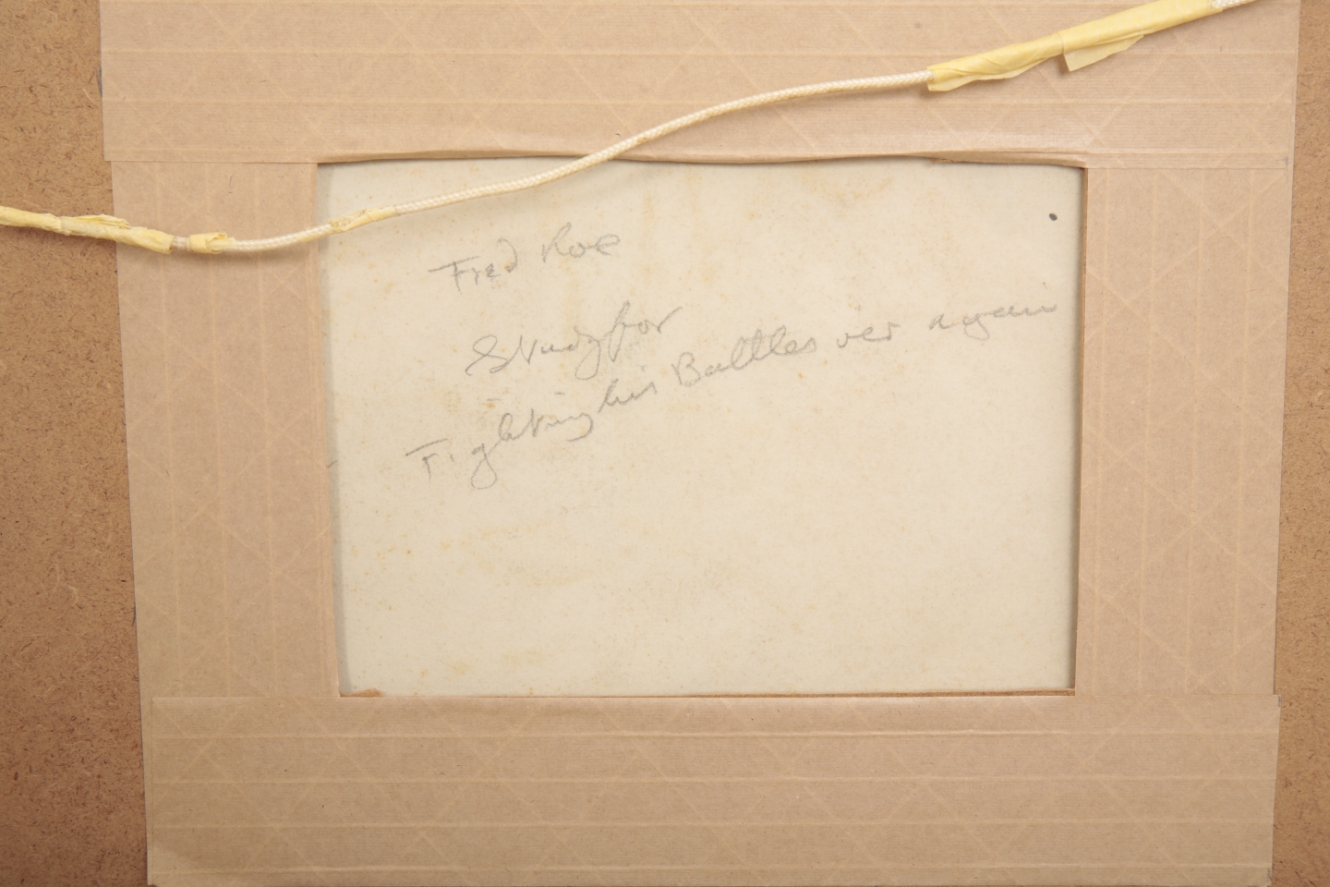 Fred Roe
Study for
Fighting his Battles over again